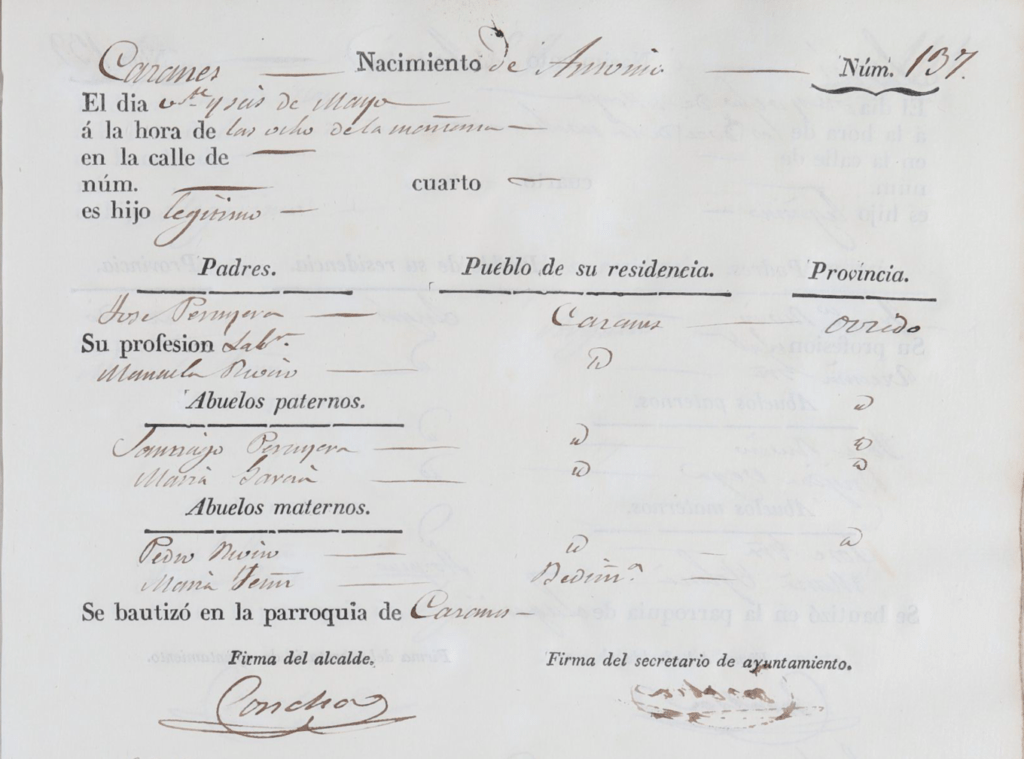 Caranes — Nacimiento de Antonio — Núm. 137.
El dia v.te y seis de Mayo —
á la hora de las ocho de la mañana —
en la calle de —
núm. — cuarto —
es hijo legitimo —
Padres. Pueblo de su residencia. Provincia.
Jose Peruyera — Caranes — Oviedo
Su profesion Lab.r
Manuela — id
Abuelos paternos. id
Santiago Peruyera — id id
Maria Garcia — id id
Abuelos maternos.
Pedro — id — id
Maria —
Se bautizó en la parroquia de Caranes —
Firma del alcalde. Firma del secretario de ayuntamiento.
Concha